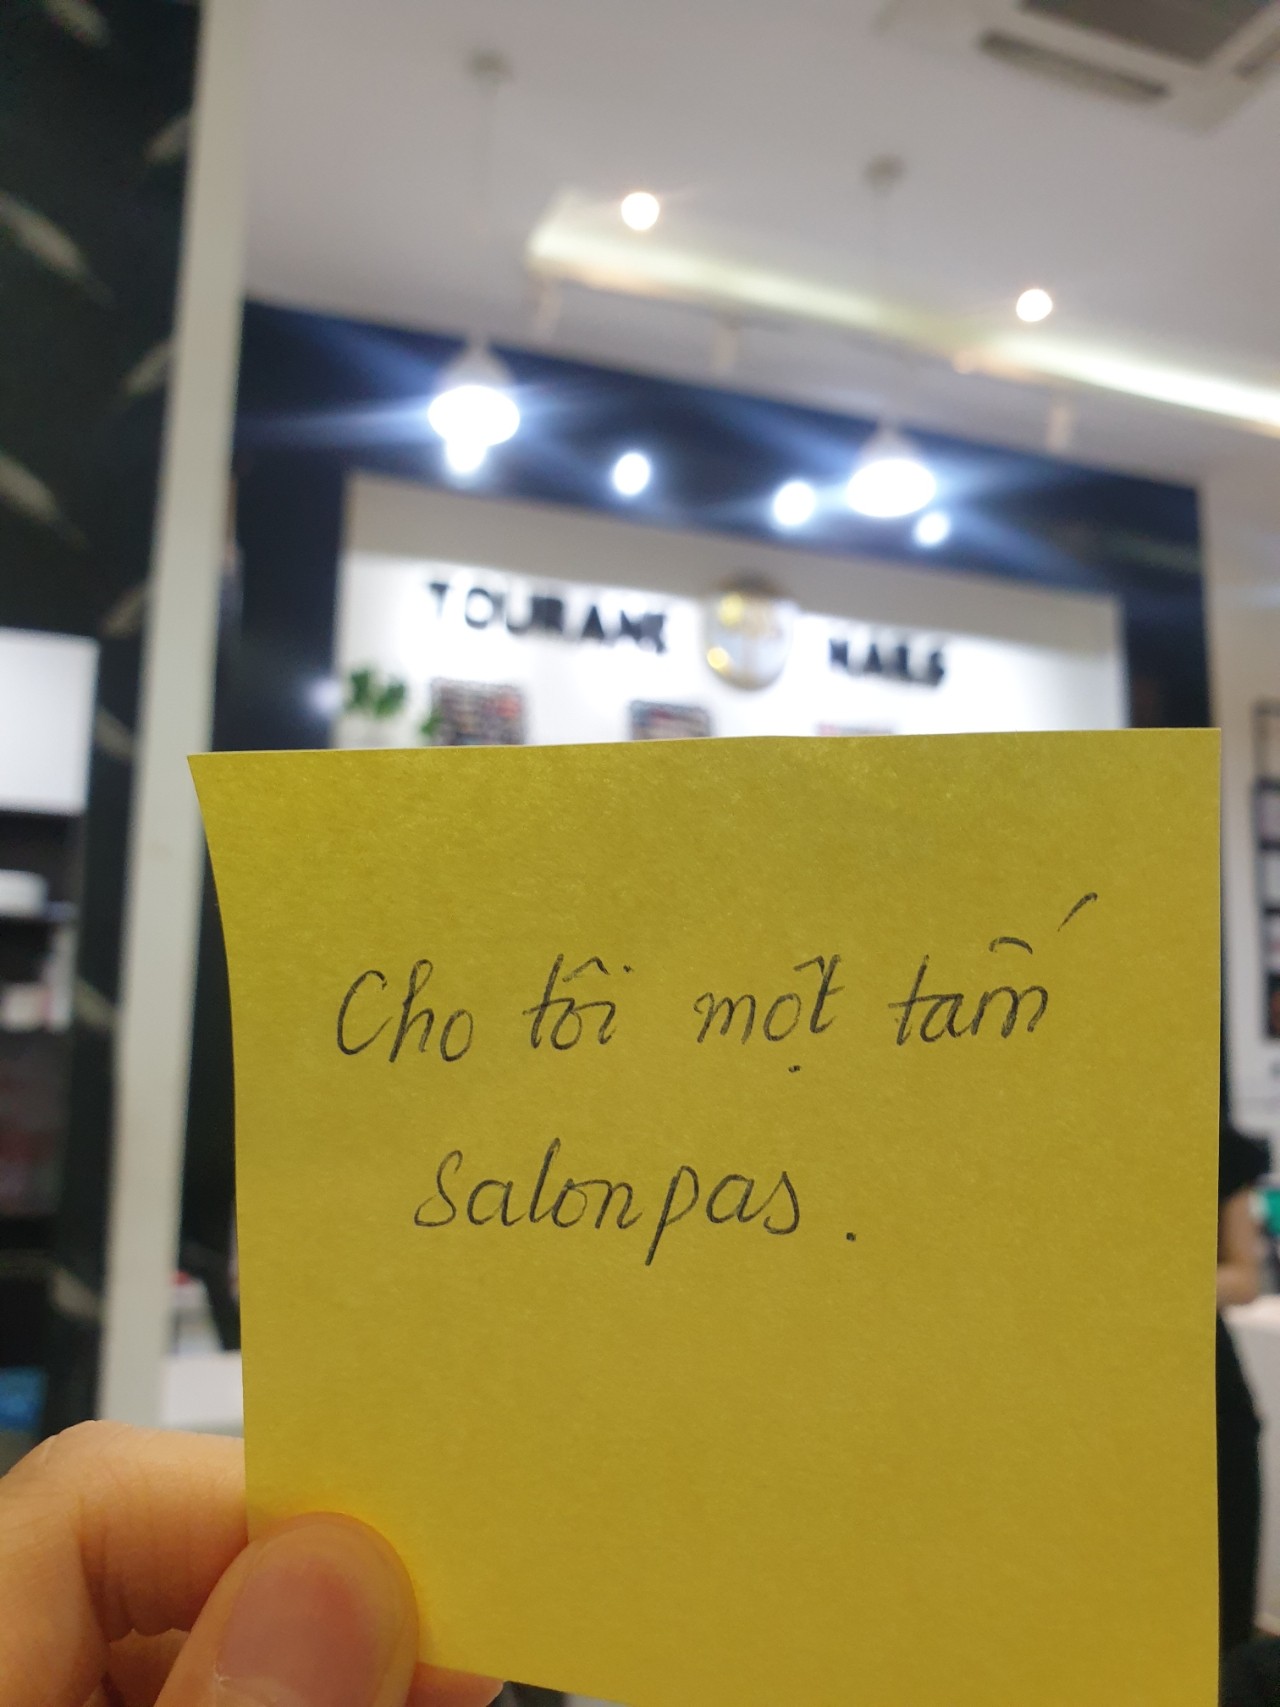 TOURANE NAILS
Cho tôi một tấm
Salonpas.